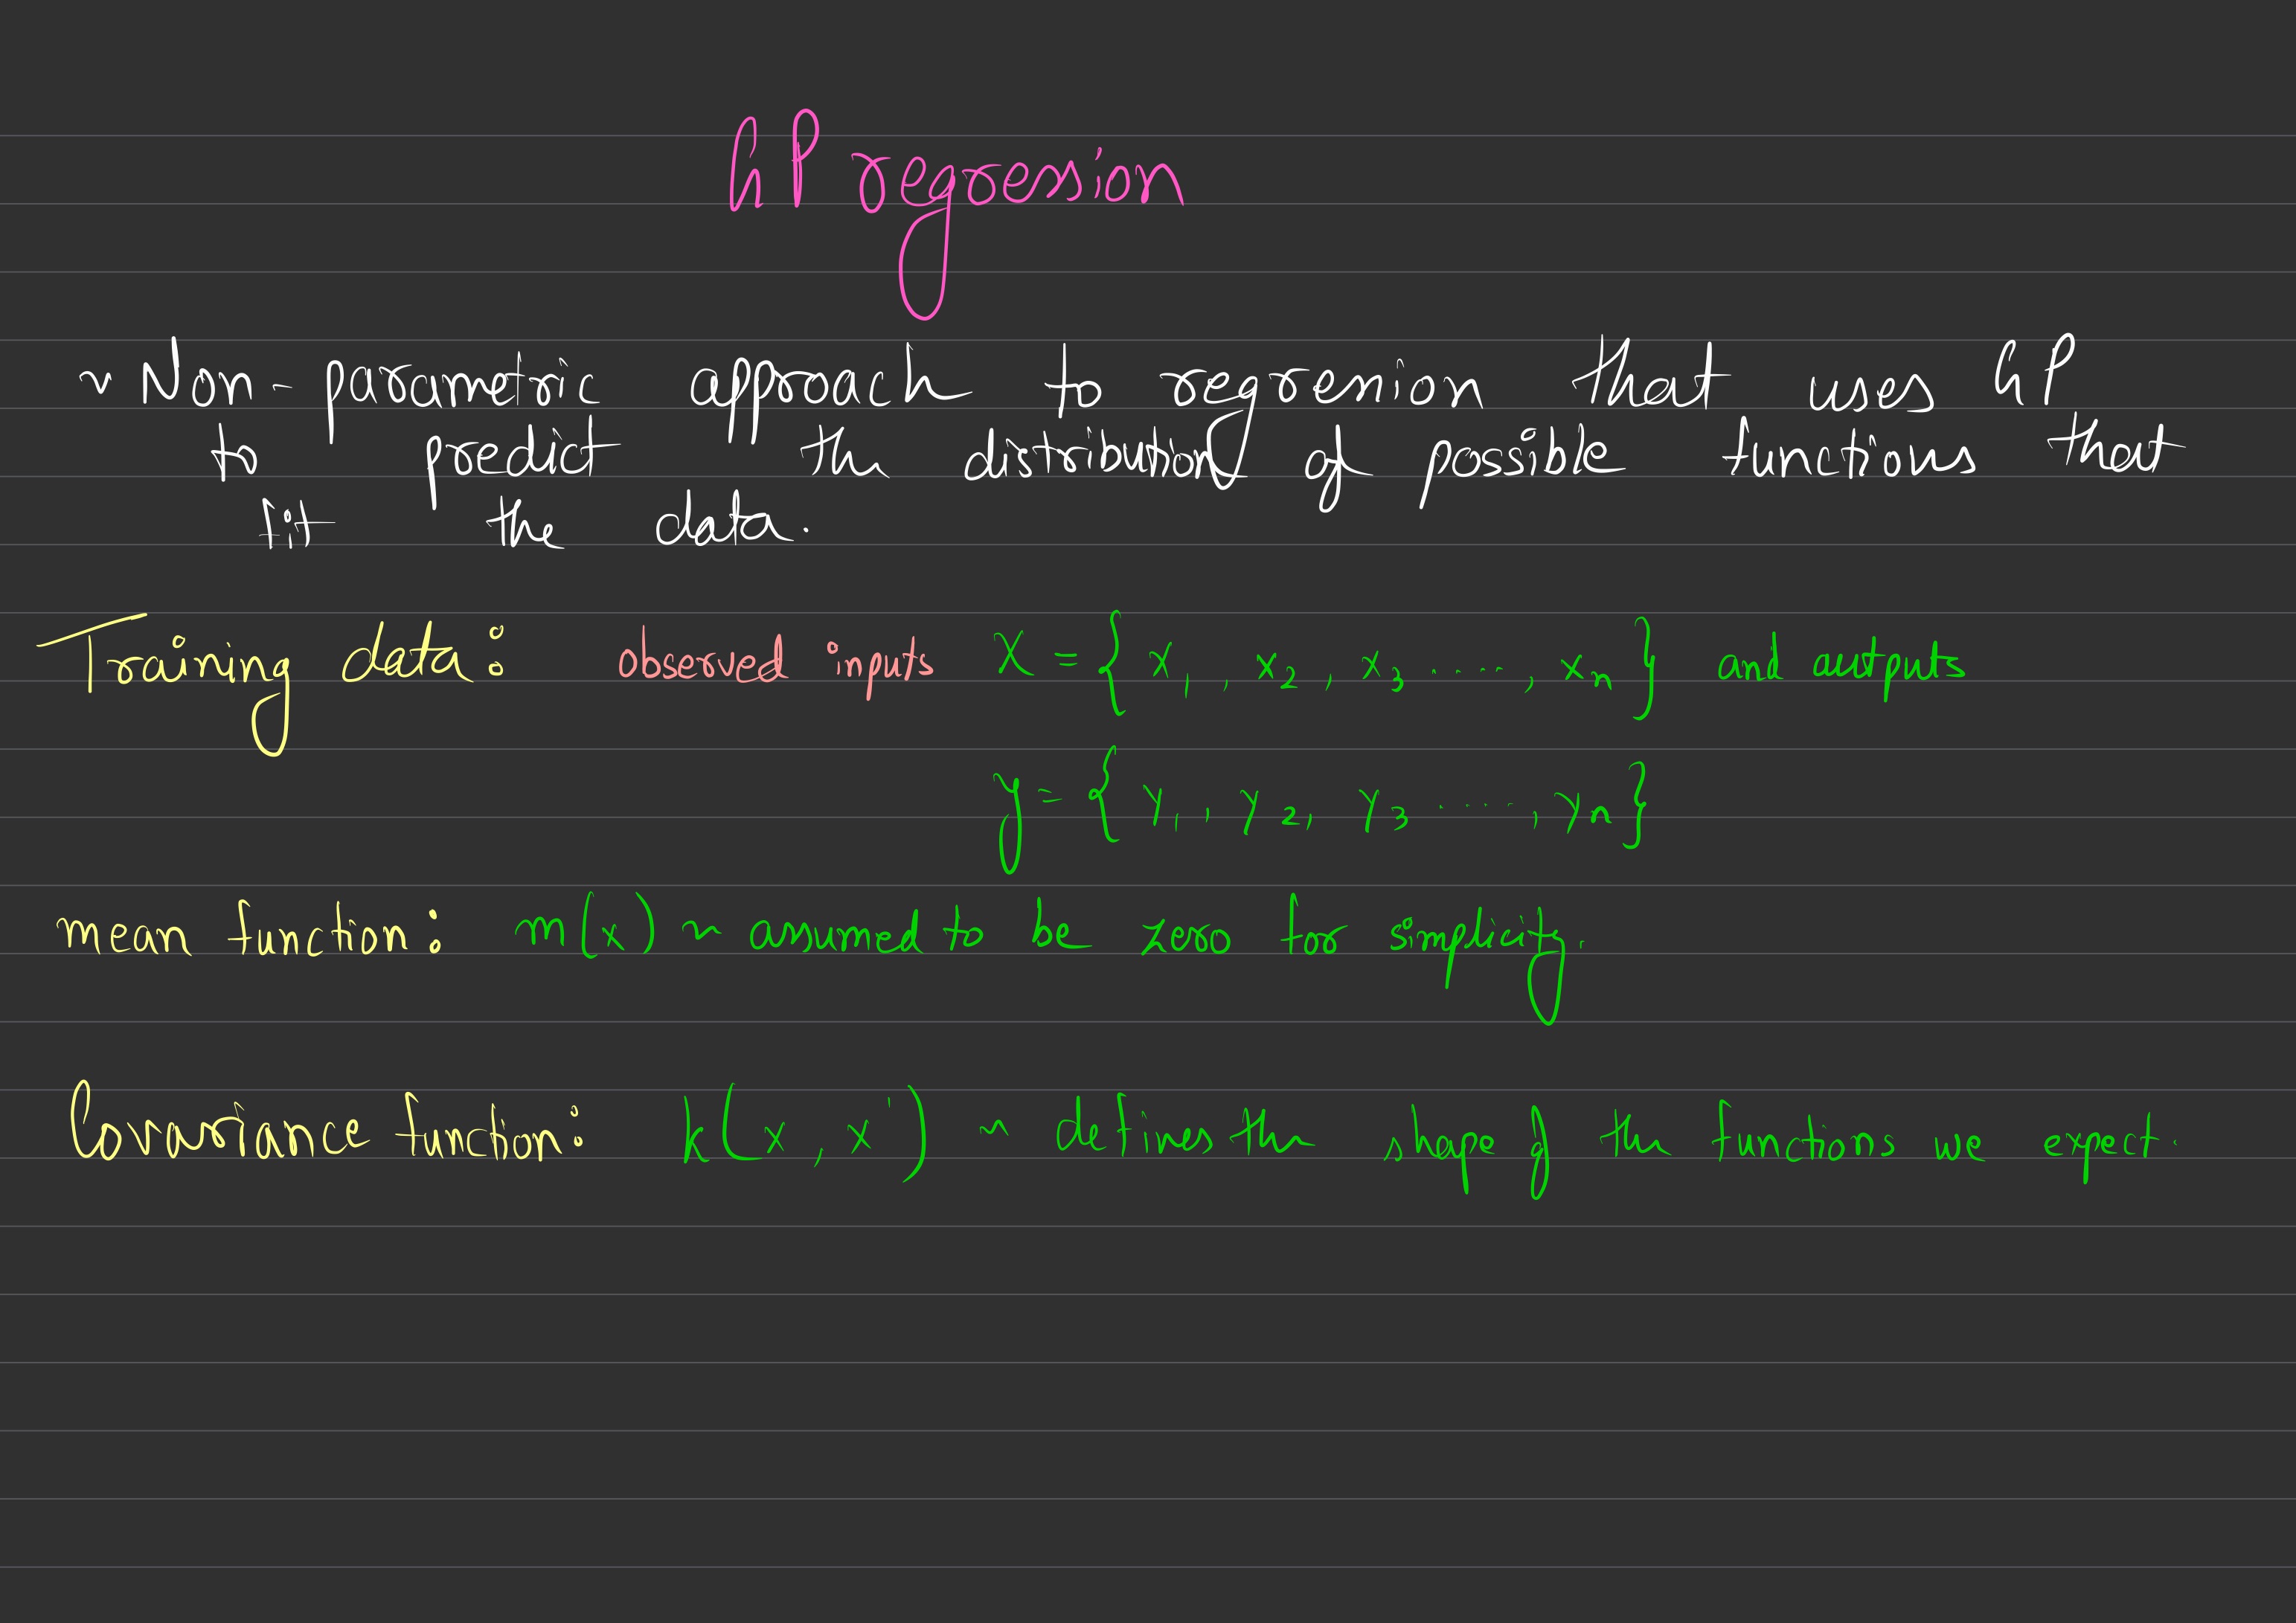 GP regression
~ Non-parametric approach to regression that uses GP
to predict the distribution of possible functions that
fit the data.
Training data: observed inputs X = {x₁, x₂, x₃ ...., xₙ} and outputs
y = {y₁, y₂, y₃ ....., yₙ}
mean function: m(x) ~ assumed to be zero for simplicity.
Covariance function: k(x, x') ~ defines the shape of the functions we expect.